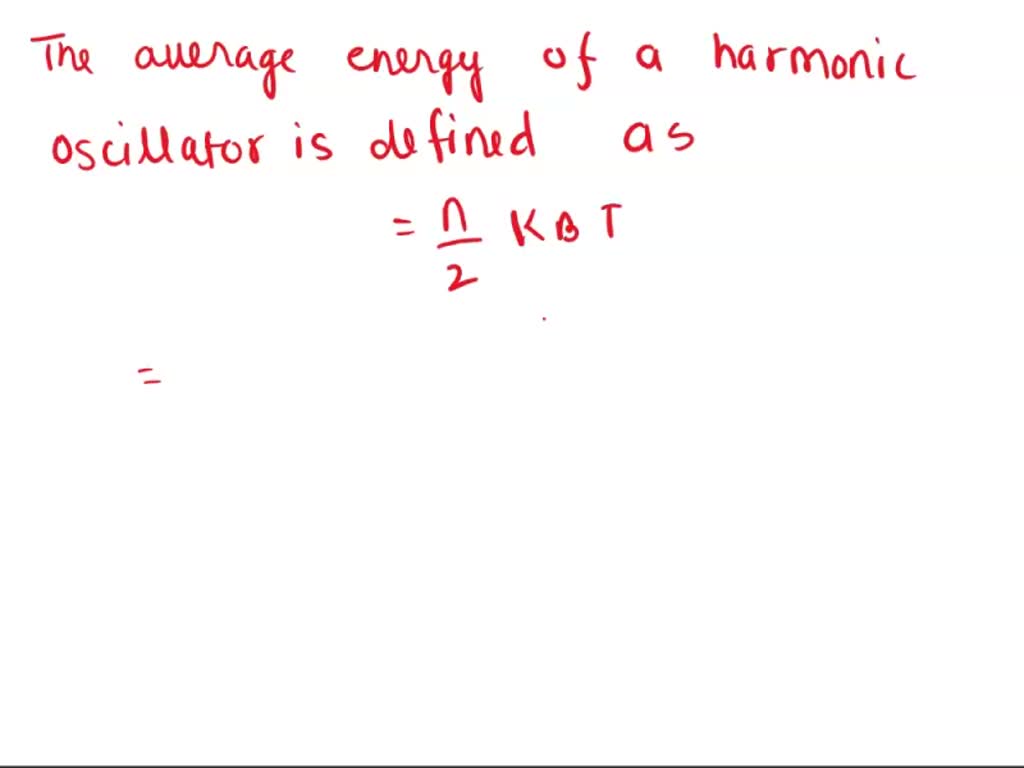 The average energy of a harmonic
oscillator is defined as
= n/2 KBT
=